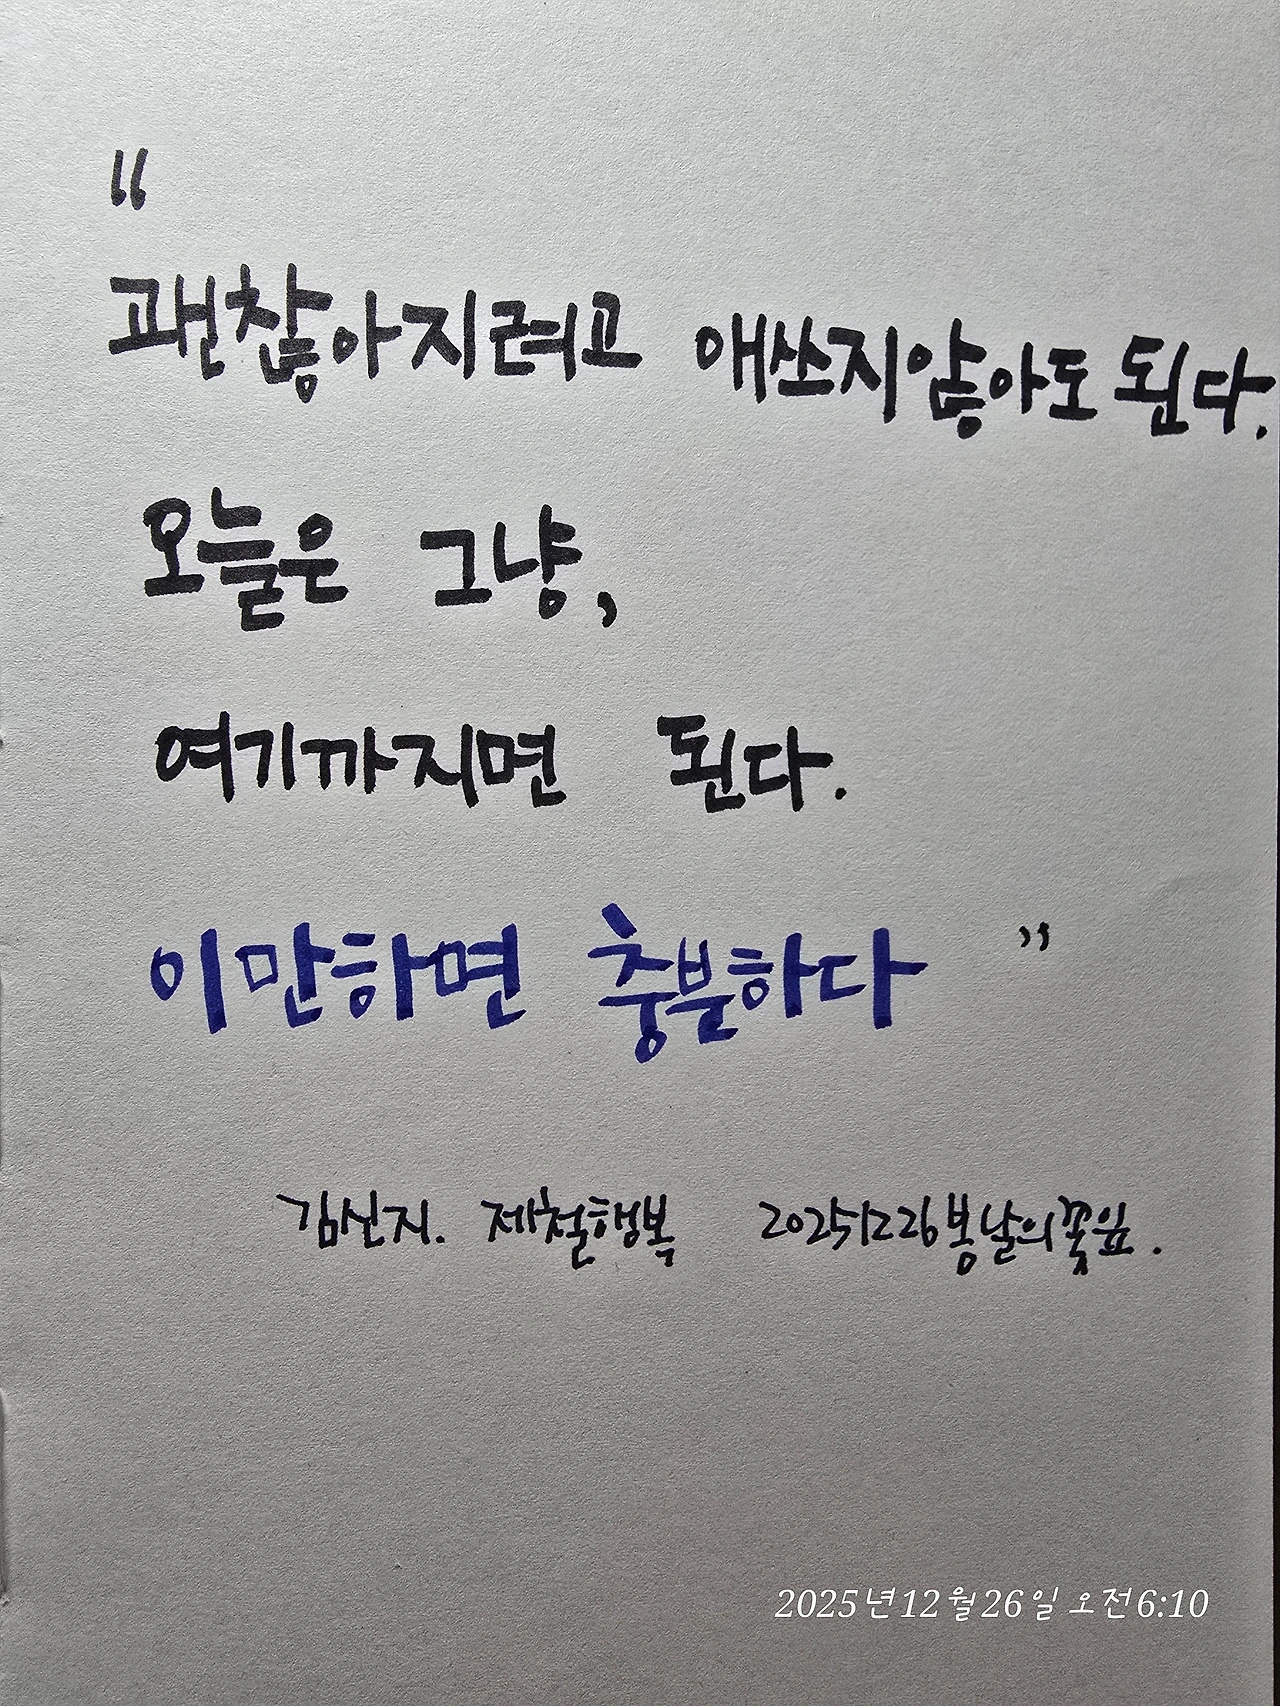 “
괜찮아지려고 애쓰지않아도 된다.
오늘은 그냥,
여기까지면 된다.
이만하면 충분하다 ”
김신지. 제철행복 20251226봄날의꽃잎.
2025년 12월 26일 오전 6:10